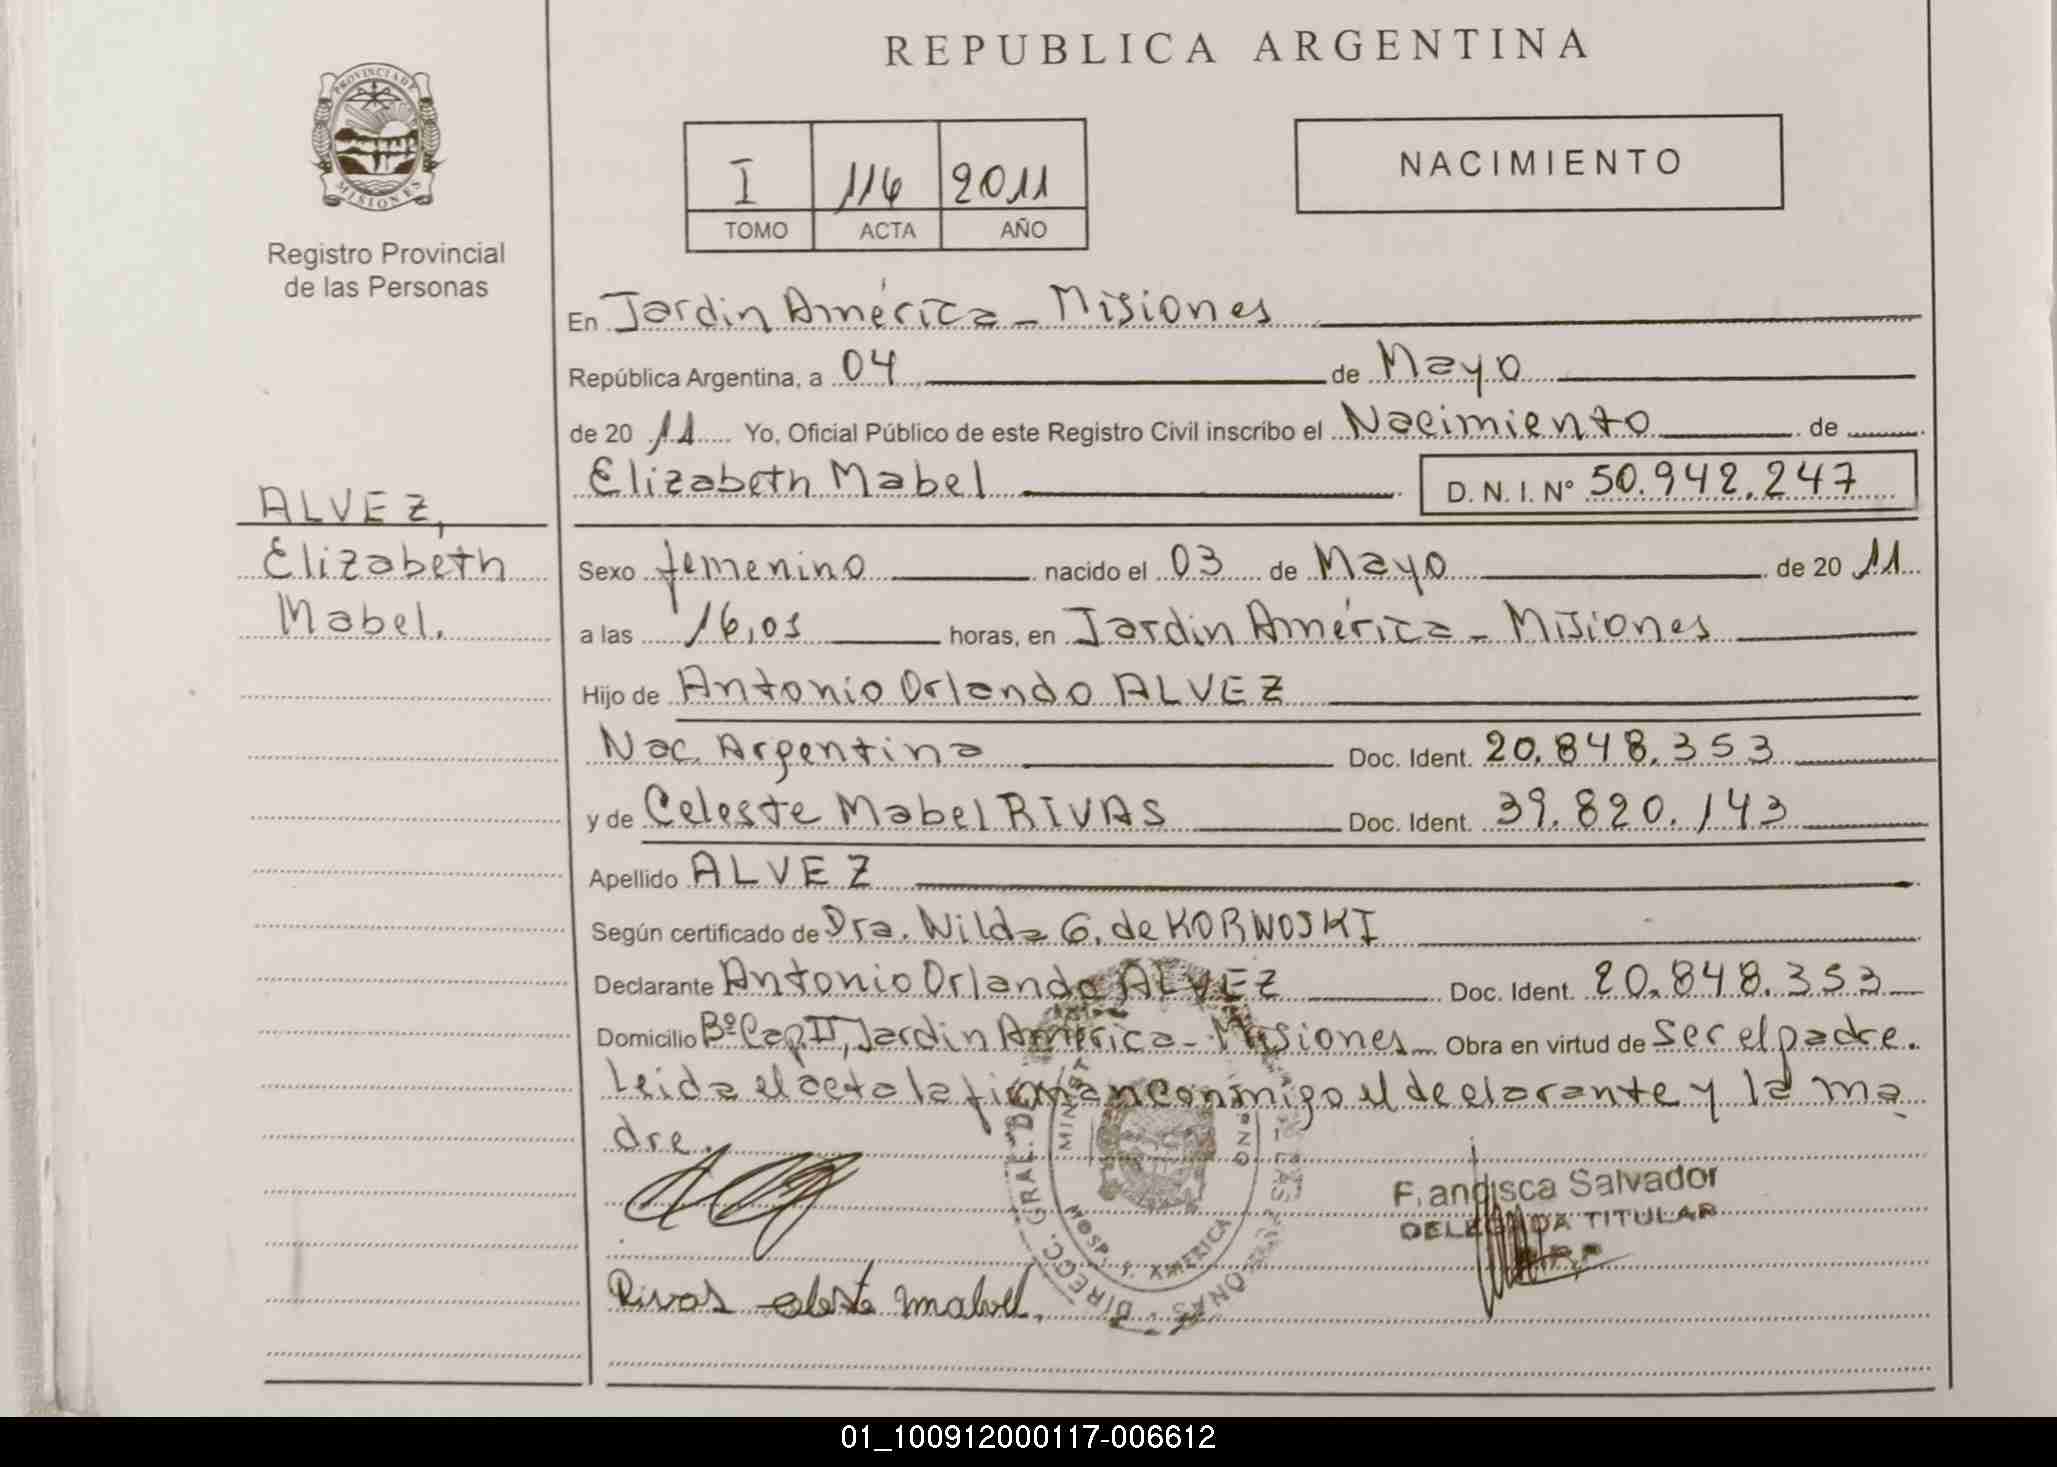 REPUBLICA ARGENTINA
PROVINCIA DE
MISIONES
Registro Provincial
de las Personas
I 116 2011
TOMO ACTA AÑO
NACIMIENTO
En Jardin América - Misiones
República Argentina, a 04 de Mayo
de 20 11 Yo, Oficial Público de este Registro Civil inscribo el Nacimiento de
Elizabeth Mabel D. N. I. Nº 50.942.247
ALVEZ,
Elizabeth
Mabel.
Sexo femenino nacido el 03 de Mayo de 20 11
a las 16,05 horas, en Jardin América - Misiones
Hijo de Antonio Orlando ALVEZ
Nac. Argentina Doc. Ident. 20.848.353
y de Celeste Mabel RIVAS Doc. Ident. 39.820.143
Apellido ALVEZ
Según certificado de Dra. Nilda G. de KORNOSKI
Declarante Antonio Orlando ALVEZ Doc. Ident. 20.848.353
Domicilio Bº Cap. II, Jardin América - Misiones Obra en virtud de ser el padre.
Leida el acta la firman conmigo el declarante y la ma
dre.
DIRECC. GRAL. DE LAS
HOSP. J. AMERICA
Francisca Salvador
DELEGADA TITULAR
Rivas celeste mabel.
01_100912000117-006612